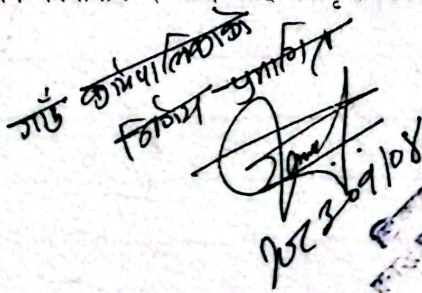 गाउँ कार्यपालिकाको
निर्णय प्रमाणित
२०८३।०९।०४